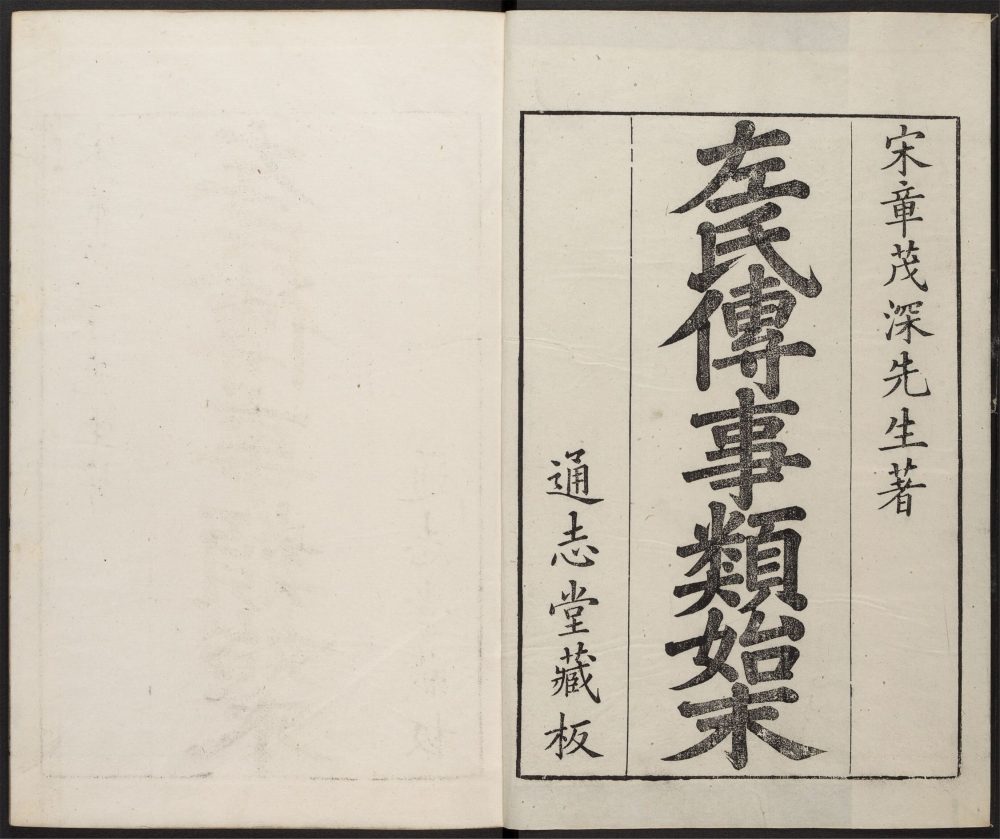 宋章茂深先生著
左氏傳事類始末
通志堂藏板